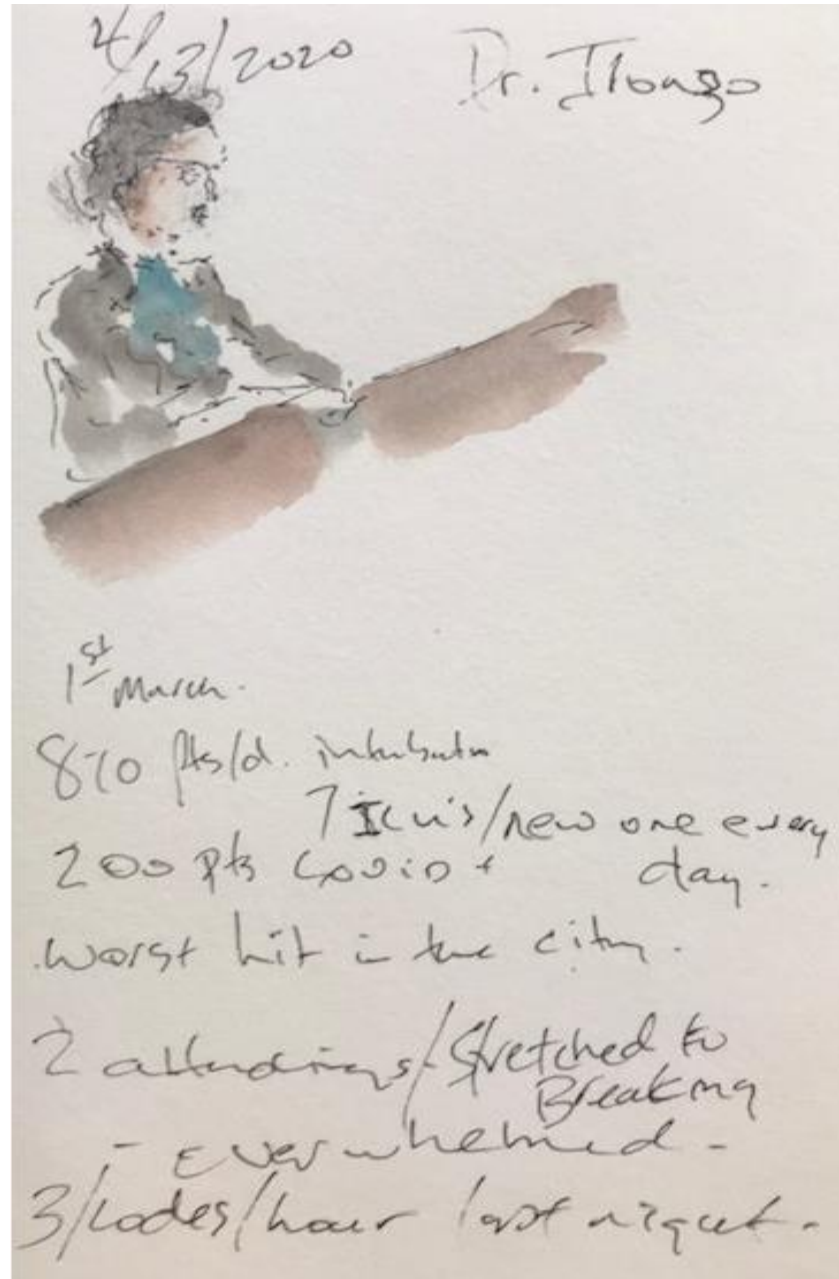 4/13/2020
Dr. Ilongo
1st March.
8-10 pts/d. intubatn
7 ICU's/new one every
200 pts COVID + day.
worst hit in the city.
2 attendings/Stretched to
Breaking
- Everwhelmed -
3/codes/hour last night.